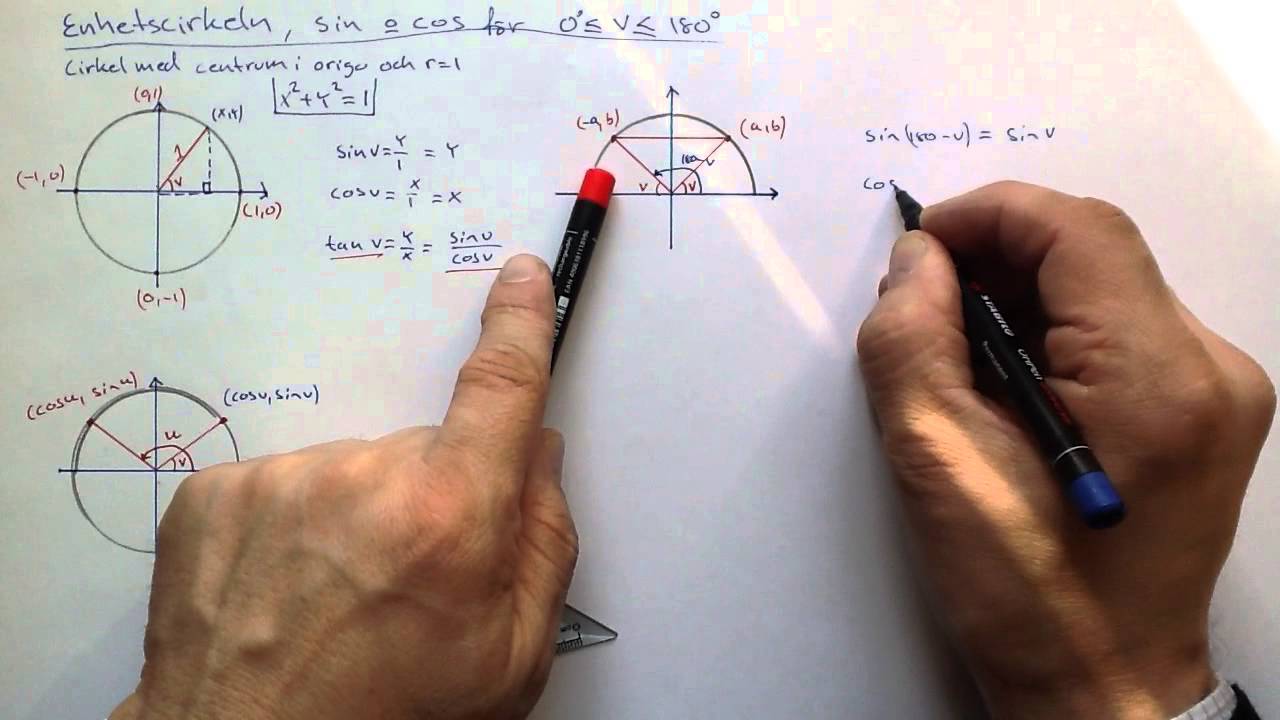 Enhetscirkeln, sin o cos för 0°≤ v ≤ 180°
Cirkel med centrum i origo och r=1
x²+y²=1
(0,1)
(x,y)
1
v
(-1,0)
(1,0)
(0,-1)
sin v = y/1 = y
cos v = x/1 = x
tan v = y/x = sin v/cos v
(-a,b)
(a,b)
180-v
v
v
sin(180-v) = sin v
cos
(cos u, sin u)
(cos v, sin v)
u
v
STABILO